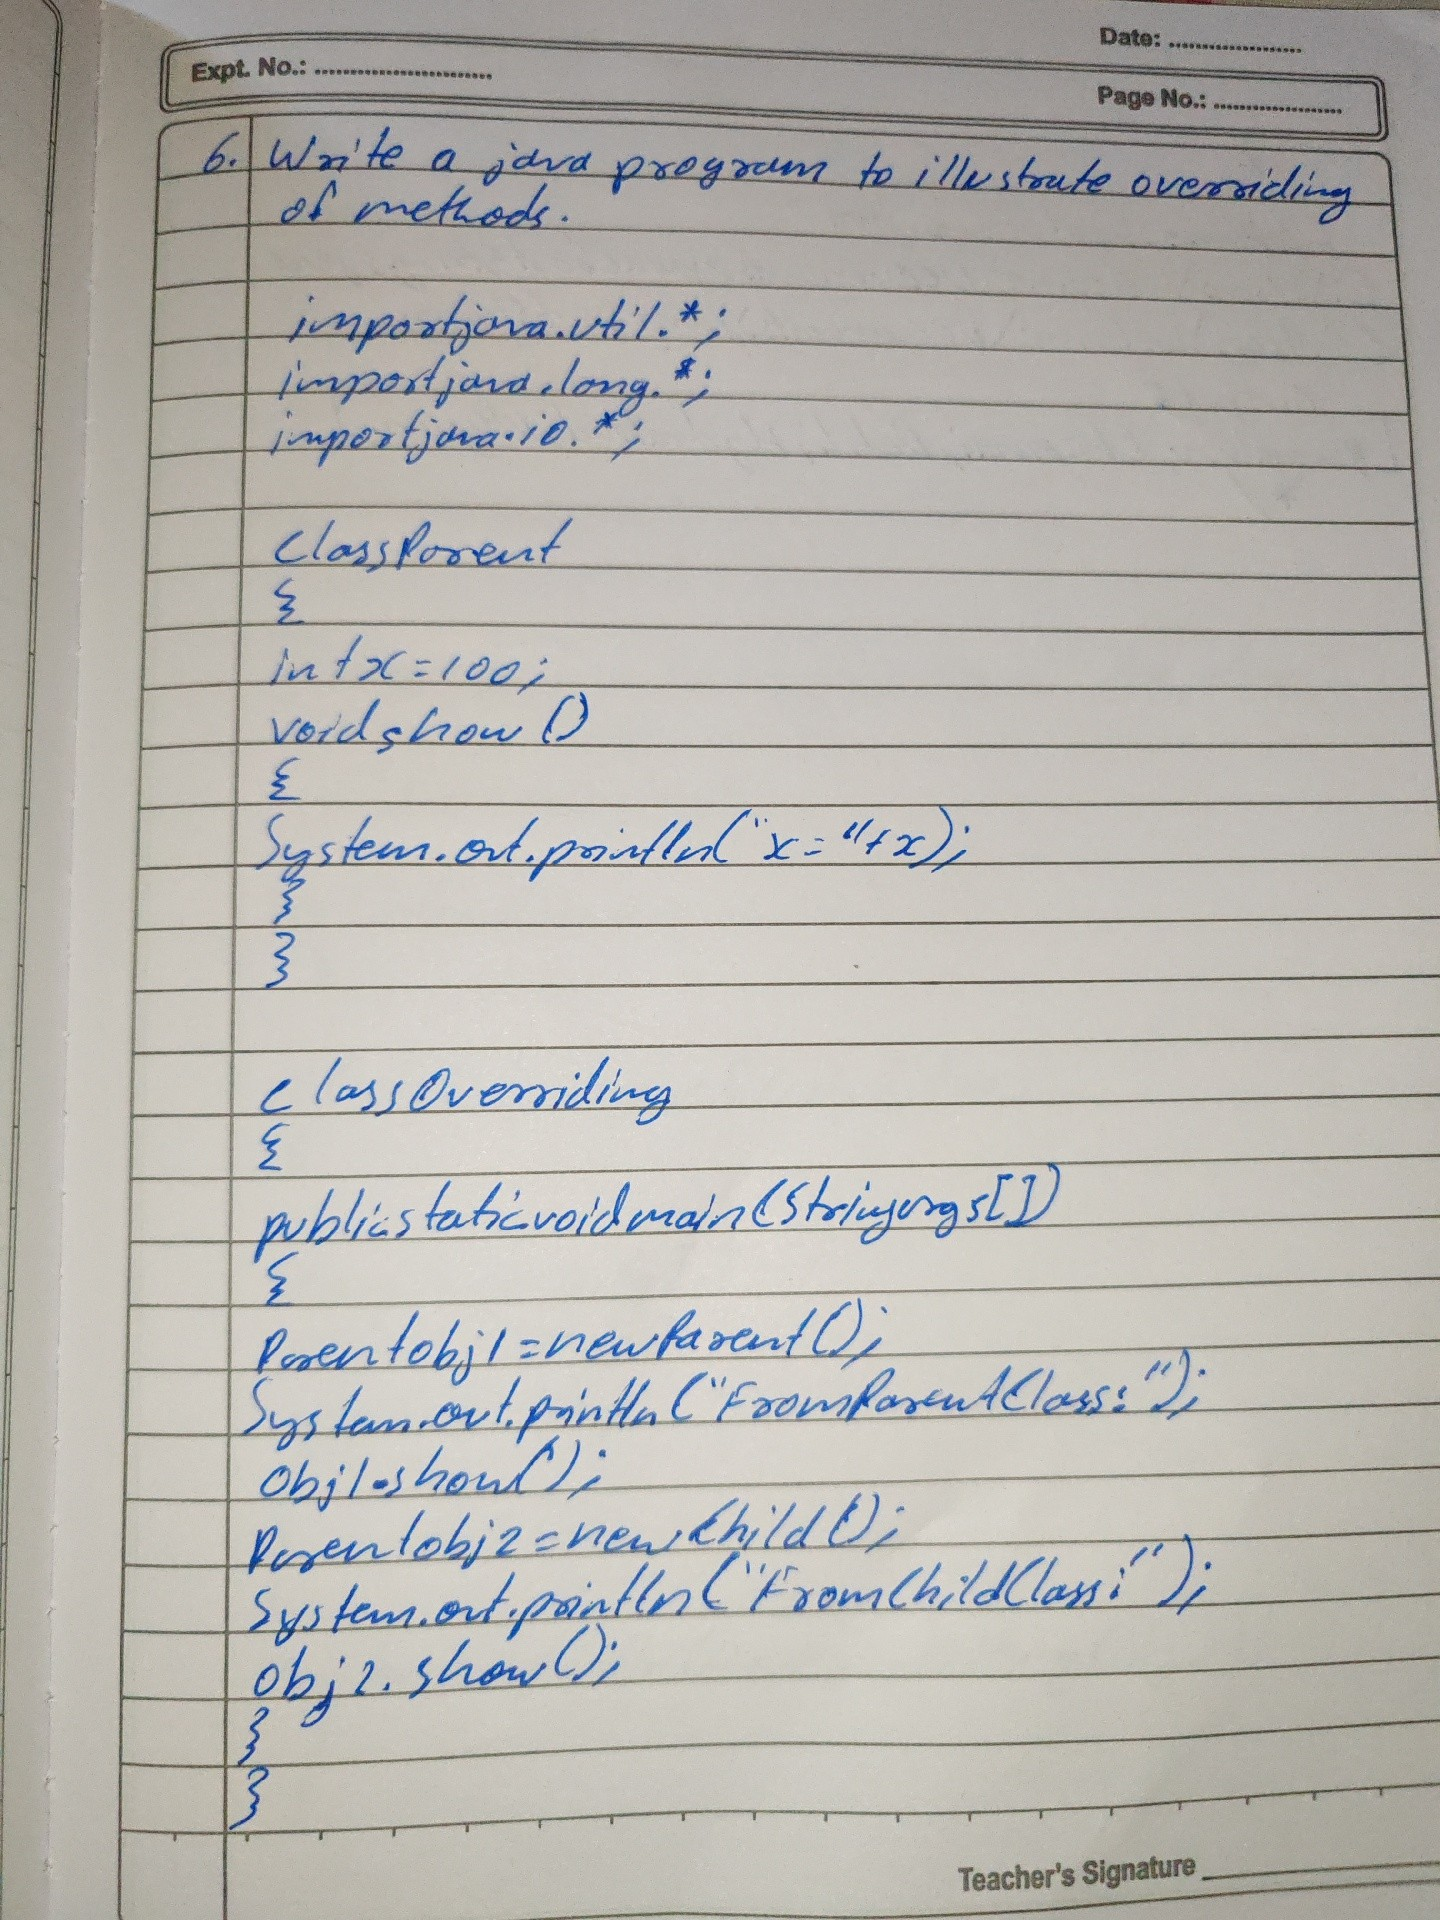 Date: ....................
Expt. No.: ..........................
Page No.: ...................
6. Write a java program to illustrate overriding
of methods.
importjava.util.*;
importjava.long.*;
importjava.io.*;
ClassParent
{
intx=100;
voidshow()
{
System.out.println("x="+x);
}
}
classOverriding
{
publicstaticvoidmain(Stringargs[])
{
Parentobj1=newParent();
System.out.println("FromParentClass:");
obj1.show();
Parentobj2=newChild();
System.out.println("FromChildClass:");
obj2.show();
}
}
Teacher's Signature